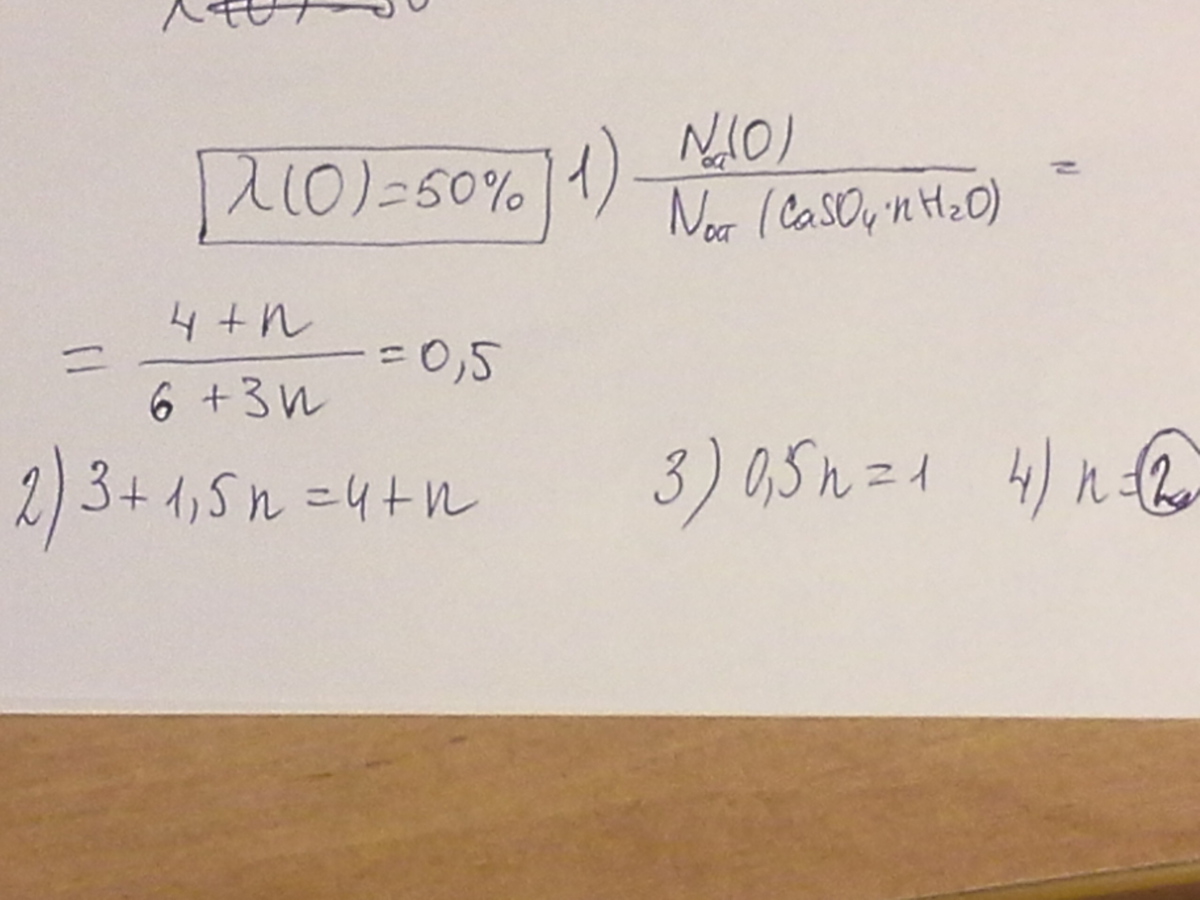 λ(O)=50% 1) Nат(O) / Nат (CaSO₄·nH₂O) =
= 4+n / 6+3n = 0,5
2) 3+1,5n=4+n 3) 0,5n=1 4) n=2